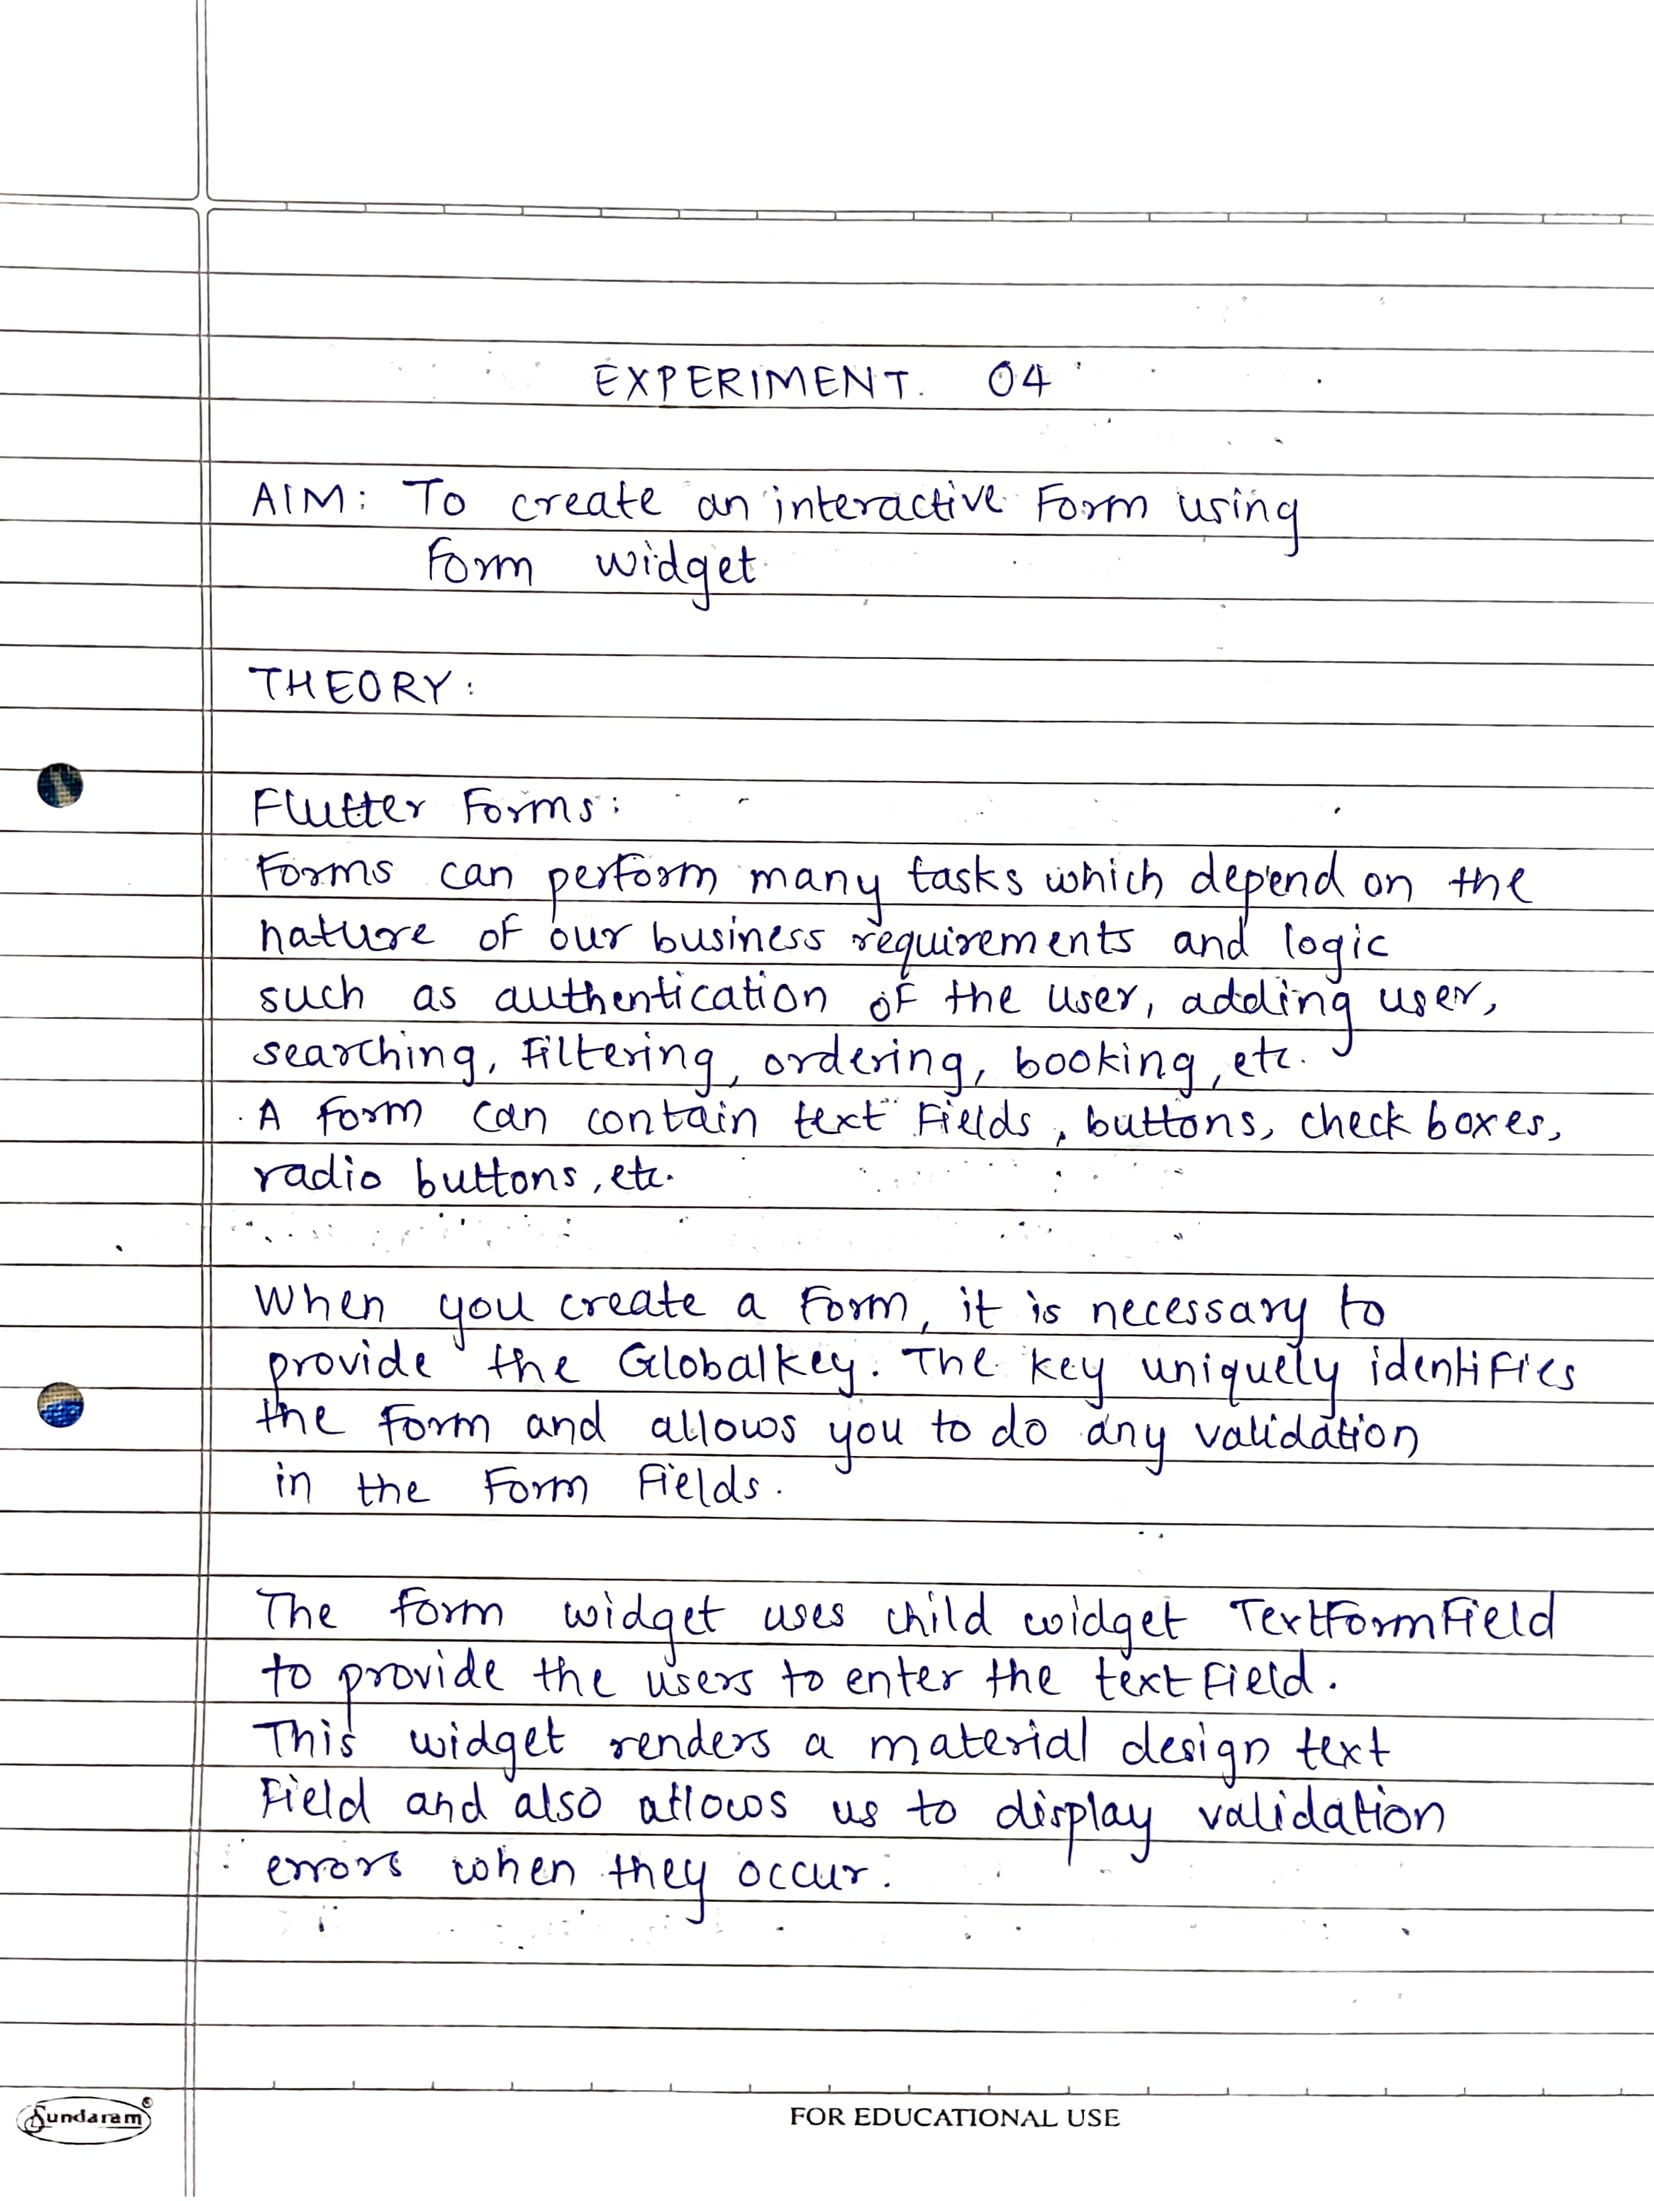 EXPERIMENT. 04
AIM: To create an interactive Form using
form widget
THEORY:
Flutter Forms:
Forms can perform many tasks which depend on the
nature of our business requirements and logic
such as authentication of the user, adding user,
searching, Filtering, ordering, booking, etc.
A form can contain text Fields, buttons, check boxes,
radio buttons, etc.
When you create a Form, it is necessary to
provide the GlobalKey. The key uniquely identifies
the form and allows you to do any validation
in the Form Fields.
The form widget uses child widget TextFormField
to provide the users to enter the text field.
This widget renders a material design text
Field and also allows us to display validation
errors when they occur.
Sundaram®
FOR EDUCATIONAL USE